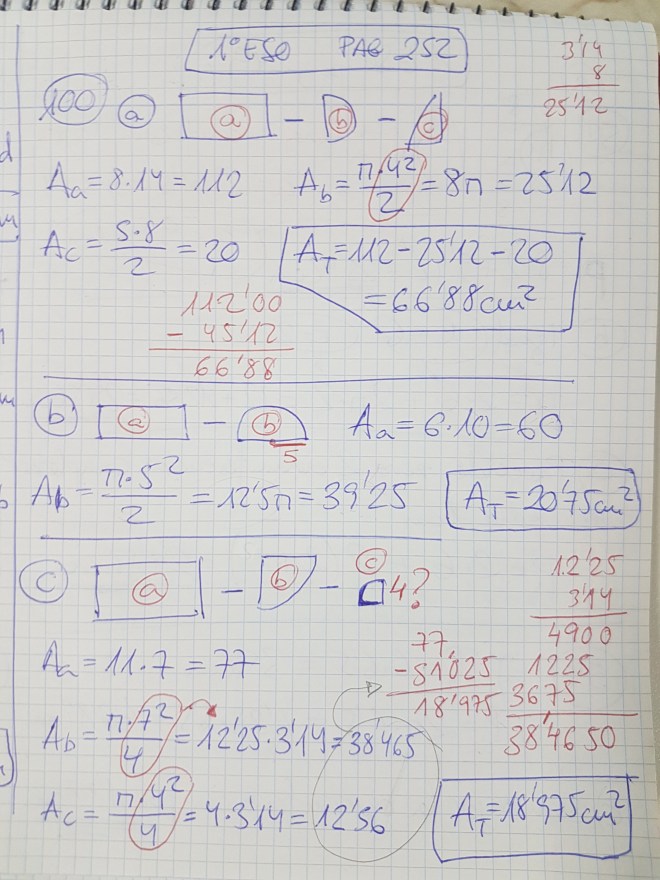 1º ESO PAG 252
3'14
8
25'12
100 a a - b - c
Aa = 8·14 = 112 Ab = π·4²/2 = 8π = 25'12
Ac = 5·8/2 = 20 AT = 112 - 25'12 - 20
= 66'88 cm²
112'00
- 45'12
66'88
b a - b 5 Aa = 6·10 = 60
Ab = π·5²/2 = 12'5π = 39'25 AT = 20'75 cm²
c a - b - c 4?
12'25
3'14
4900
1225
3675
38'4650
Aa = 11·7 = 77
77,
- 51025
18'975
Ab = π·7²/4 = 12'25·3'14 = 38'465
Ac = π·4²/4 = 4·3'14 = 12'56 AT = 18'975 cm²